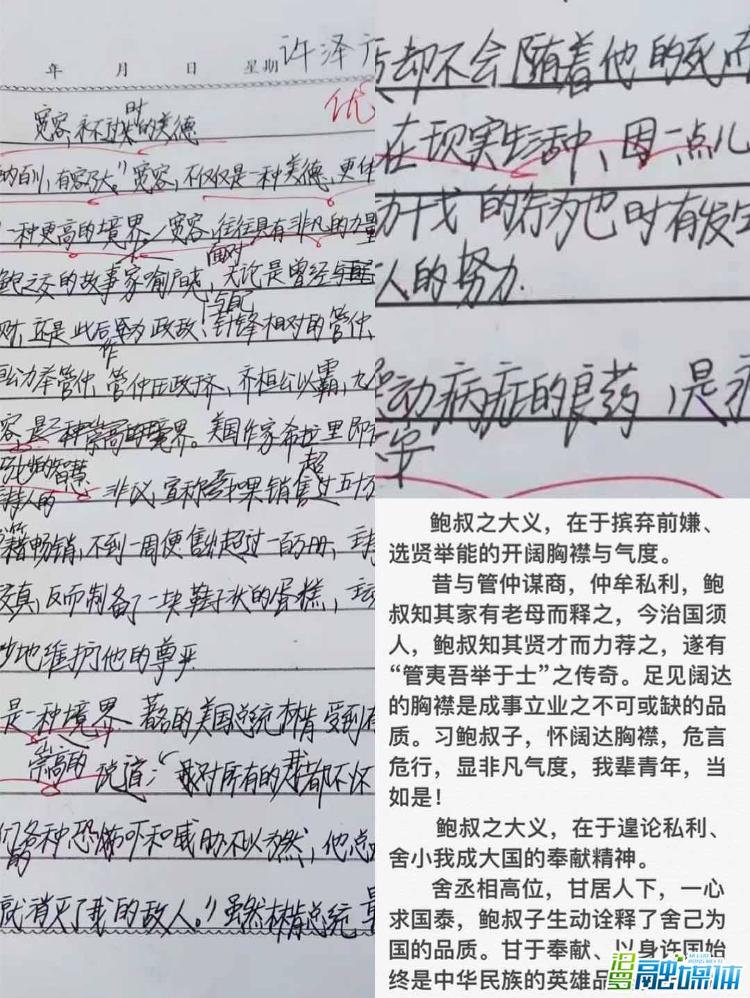 年 月 日 星期
许泽
优
宽容,永不过时的美德
纳百川,有容乃大。"宽容,不仅仅是一种美德,更
一种更高的境界。宽容往往具有非凡的力量
之交的故事家喻户晓,无论是曾经与
面对
财,还是此后 政敌、针锋相对的管仲,
力举管仲,管仲 政 ,齐桓公以霸,九
容是一种崇高的境界。美国作家希拉里
的智慧
非议,宣称如果销售超过五十万
籍畅销,不到一周便售出超过一百万册,主持
较真,反而制备了一块鞋子状的蛋糕,
妙地维护他的尊严
是一种境界 著名的美国总统林肯受到
崇高的 说道:"我对所有的 都不怀
们的各种恐怖吓和威胁不以为然,他总
就消灭了我的敌人。"虽然林肯总统
后却不会随着他的死而
在现实生活中,因一点儿
动干戈的行为也时有发生
人的努力.
运动病症的良药,是
鲍叔之大义,在于摈弃前嫌、
选贤举能的开阔胸襟与气度。
昔与管仲谋商,仲牟私利,鲍
叔知其家有老母而释之,今治国须
人,鲍叔知其贤才而力荐之,遂有
“管夷吾举于士”之传奇。足见阔达
的胸襟是成事立业之不可或缺的品
质。习鲍叔子,怀阔达胸襟,危言
危行,显非凡气度,我辈青年,当
如是!
鲍叔之大义,在于遑论私利、
舍小我成大国的奉献精神。
舍丞相高位,甘居人下,一心
求国泰,鲍叔子生动诠释了舍己为
国的品质。甘于奉献、以身许国始
终是中华民族的英雄品
融媒体